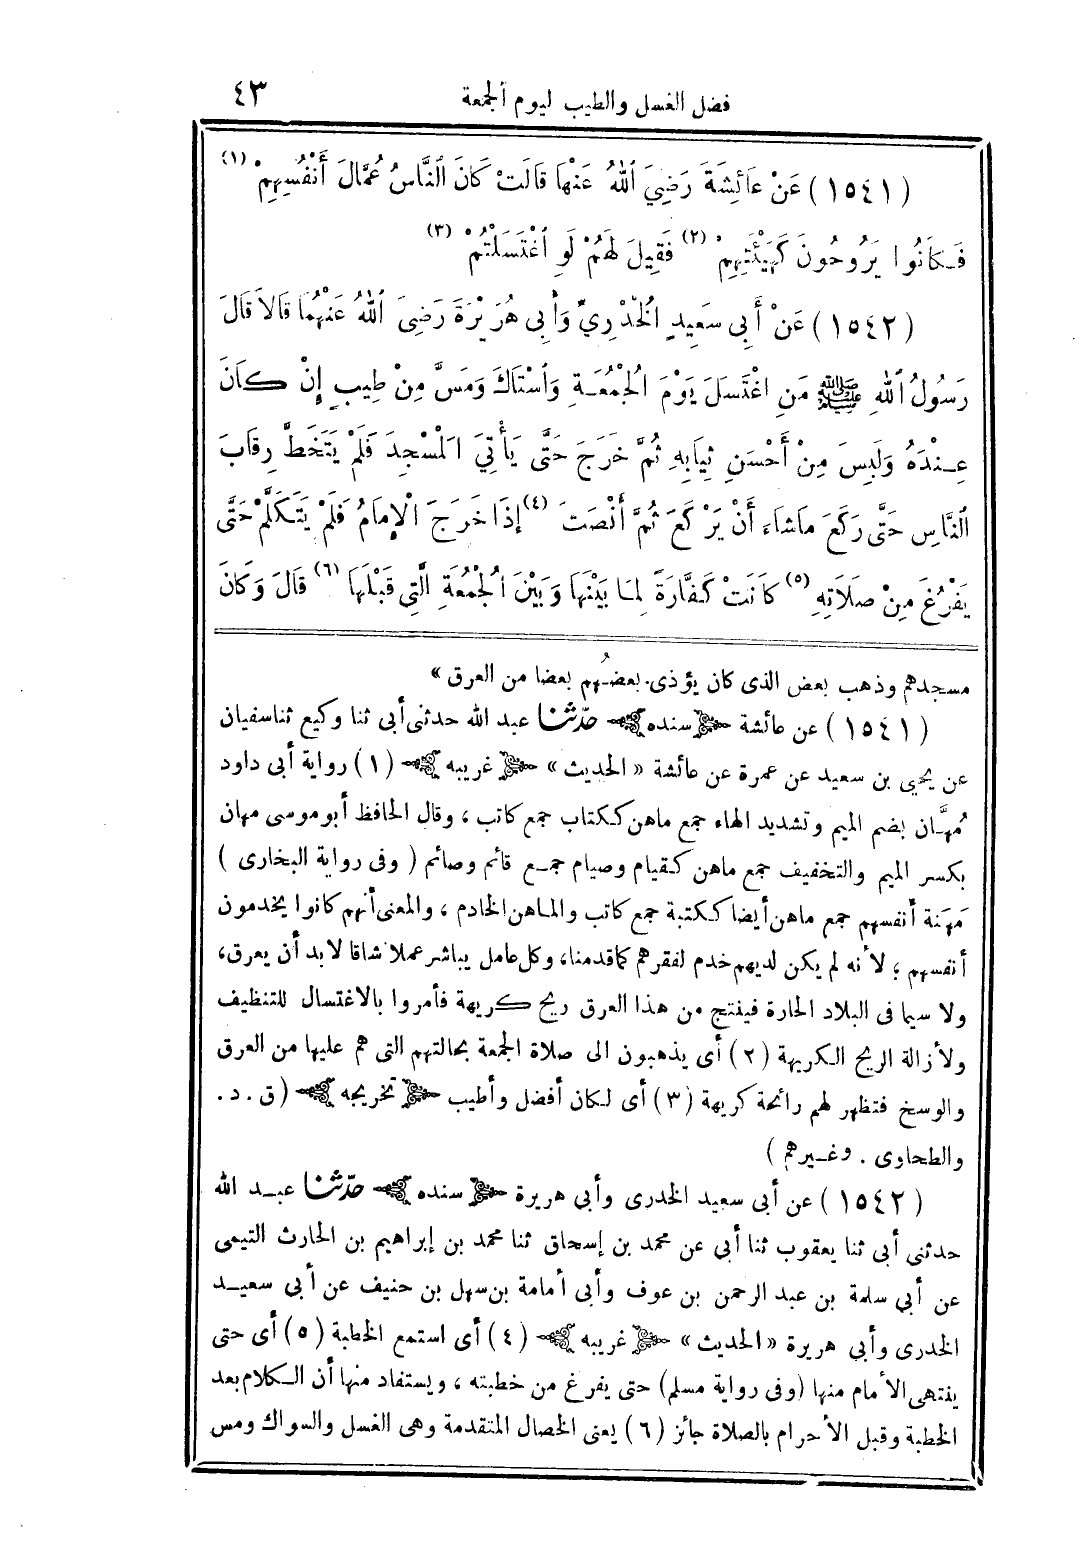 فضل الغسل والطيب ليوم الجمعة ٤٣
(١٥٤١) عَنْ عَائِشَةَ رَضِيَ ٱللهُ عَنْهَا قَالَتْ كَانَ ٱلنَّاسُ عُمَّالَ أَنْفُسِهِمْ (١)
فَكَانُوا يَرُوحُونَ كَهَيْئَتِهِمْ (٢) فَقِيلَ لَهُمْ لَوِ ٱغْتَسَلْتُمْ (٣)
(١٥٤٢) عَنْ أَبِى سَعِيدٍ الْخُدْرِيِّ وَأَبِى هُرَيْرَةَ رَضِىَ ٱللهُ عَنْهُمَا قَالاَ قَالَ
رَسُولُ ٱللهِ ﷺ مَنِ اغْتَسَلَ يَوْمَ الْجُمُعَةِ وَٱسْتَاكَ وَمَسَّ مِنْ طِيبٍ إِنْ كَانَ
عِنْدَهُ وَلَبِسَ مِنْ أَحْسَنِ ثِيَابِهِ ثُمَّ خَرَجَ حَتَّى يَأْتِىَ الْمَسْجِدَ فَلَمْ يَتَخَطَّ رِقَابَ
ٱلنَّاسِ حَتَّى رَكَعَ مَاشَاءَ أَنْ يَرْكَعَ ثُمَّ أَنْصَتَ (٤) إِذَا خَرَجَ الْإِمَامُ فَلَمْ يَتَكَلَّمْ حَتَّى
يَفْرُغَ مِنْ صَلَاتِهِ (٥) كَانَتْ كَفَّارَةً لِمَا بَيْنَهَا وَبَيْنَ الْجُمُعَةِ الَّتِى قَبْلَهَا (٦) قَالَ وَكَانَ
مسجدهم وذهب بعض الذى كان يؤذى بعضُهم بعضا من العرق»
(١٥٤١) عن عائشة سنده حدّثنا عبد الله حدثنى أبى ثنا وكيع ثنا سفيان
عن يحيى بن سعيد عن عمرة عن عائشة «الحديث» غريبه (١) رواية أبى داود
مُهَّان بضم الميم وتشديد الهاء جمع ماهن ككتاب جمع كاتب، وقال الحافظ أبو موسى مهان
بكسر الميم والتخفيف جمع ماهن كقيام وصيام جمع قائم وصائم (وفى رواية البخارى)
مَهَنة أنفسهم جمع ماهن أيضا ككتبة جمع كاتب والماهن الخادم، والمعنى أنهم كانوا يخدمون
أنفسهم؛ لأنه لم يكن لديهم خدم لفقرهم كما قدمنا، وكل عامل يباشر عملا شاقا لا بد أن يعرق،
ولا سيما فى البلاد الحارة فينتج من هذا العرق ريح كريهة فأمروا بالاغتسال للتنظيف
ولأزالة الريح الكريهة (٢) أى يذهبون الى صلاة الجمعة بحالتهم التى هم عليها من العرق
والوسخ فتظهر لهم رائحة كريهة (٣) أى لكان أفضل وأطيب تخريجه (ق . د .
والطحاوى . وغيرهم)
(١٥٤٢) عن أبى سعيد الخدرى وأبى هريرة سنده حدّثنا عبد الله
حدثنى أبى ثنا يعقوب ثنا أبى عن محمد بن إسحاق ثنا محمد بن إبراهيم بن الحارث التيمى
عن أبى سلمة بن عبد الرحمن بن عوف وأبى أمامة بن سهل بن حنيف عن أبى سعيد
الخدرى وأبى هريرة «الحديث» غريبه (٤) أى استمع الخطبة (٥) أى حتى
ينتهى الأمام منها (وفى رواية مسلم) حتى يفرغ من خطبته، ويستفاد منها أن الكلام بعد
الخطبة وقبل الأحرام بالصلاة جائز (٦) يعنى الخصال المتقدمة وهى الغسل والسواك ومس